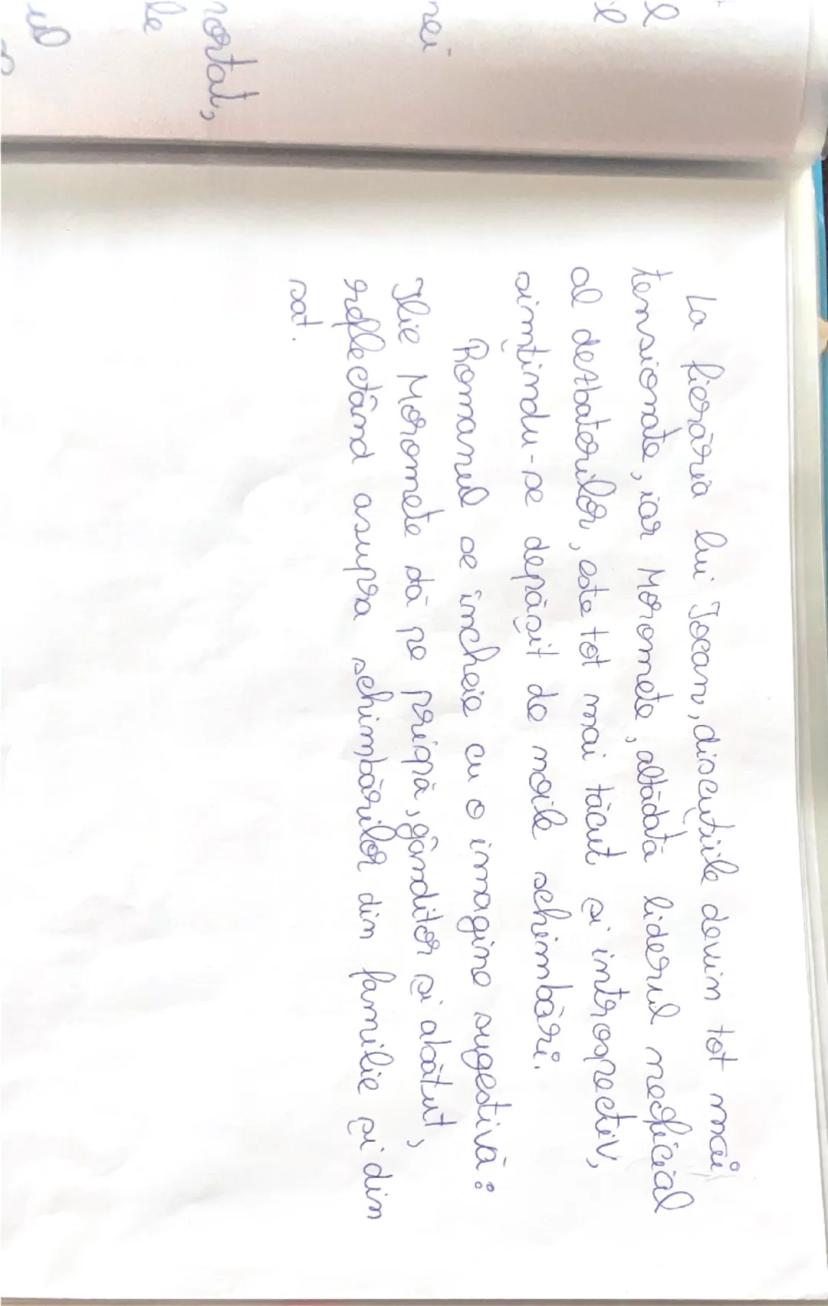 La fierăria lui Iocan, discuțiile devin tot mai
tensionate, iar Moromete, altădată liderul neoficial
al dezbaterilor, este tot mai tăcut și introspectiv,
simțindu-se depășit de noile schimbări.
Romanul se încheie cu o imagine sugestivă:
Ilie Moromete stă pe prispă, gânditor și abătut,
reflectând asupra schimbărilor din familie și din
sat.